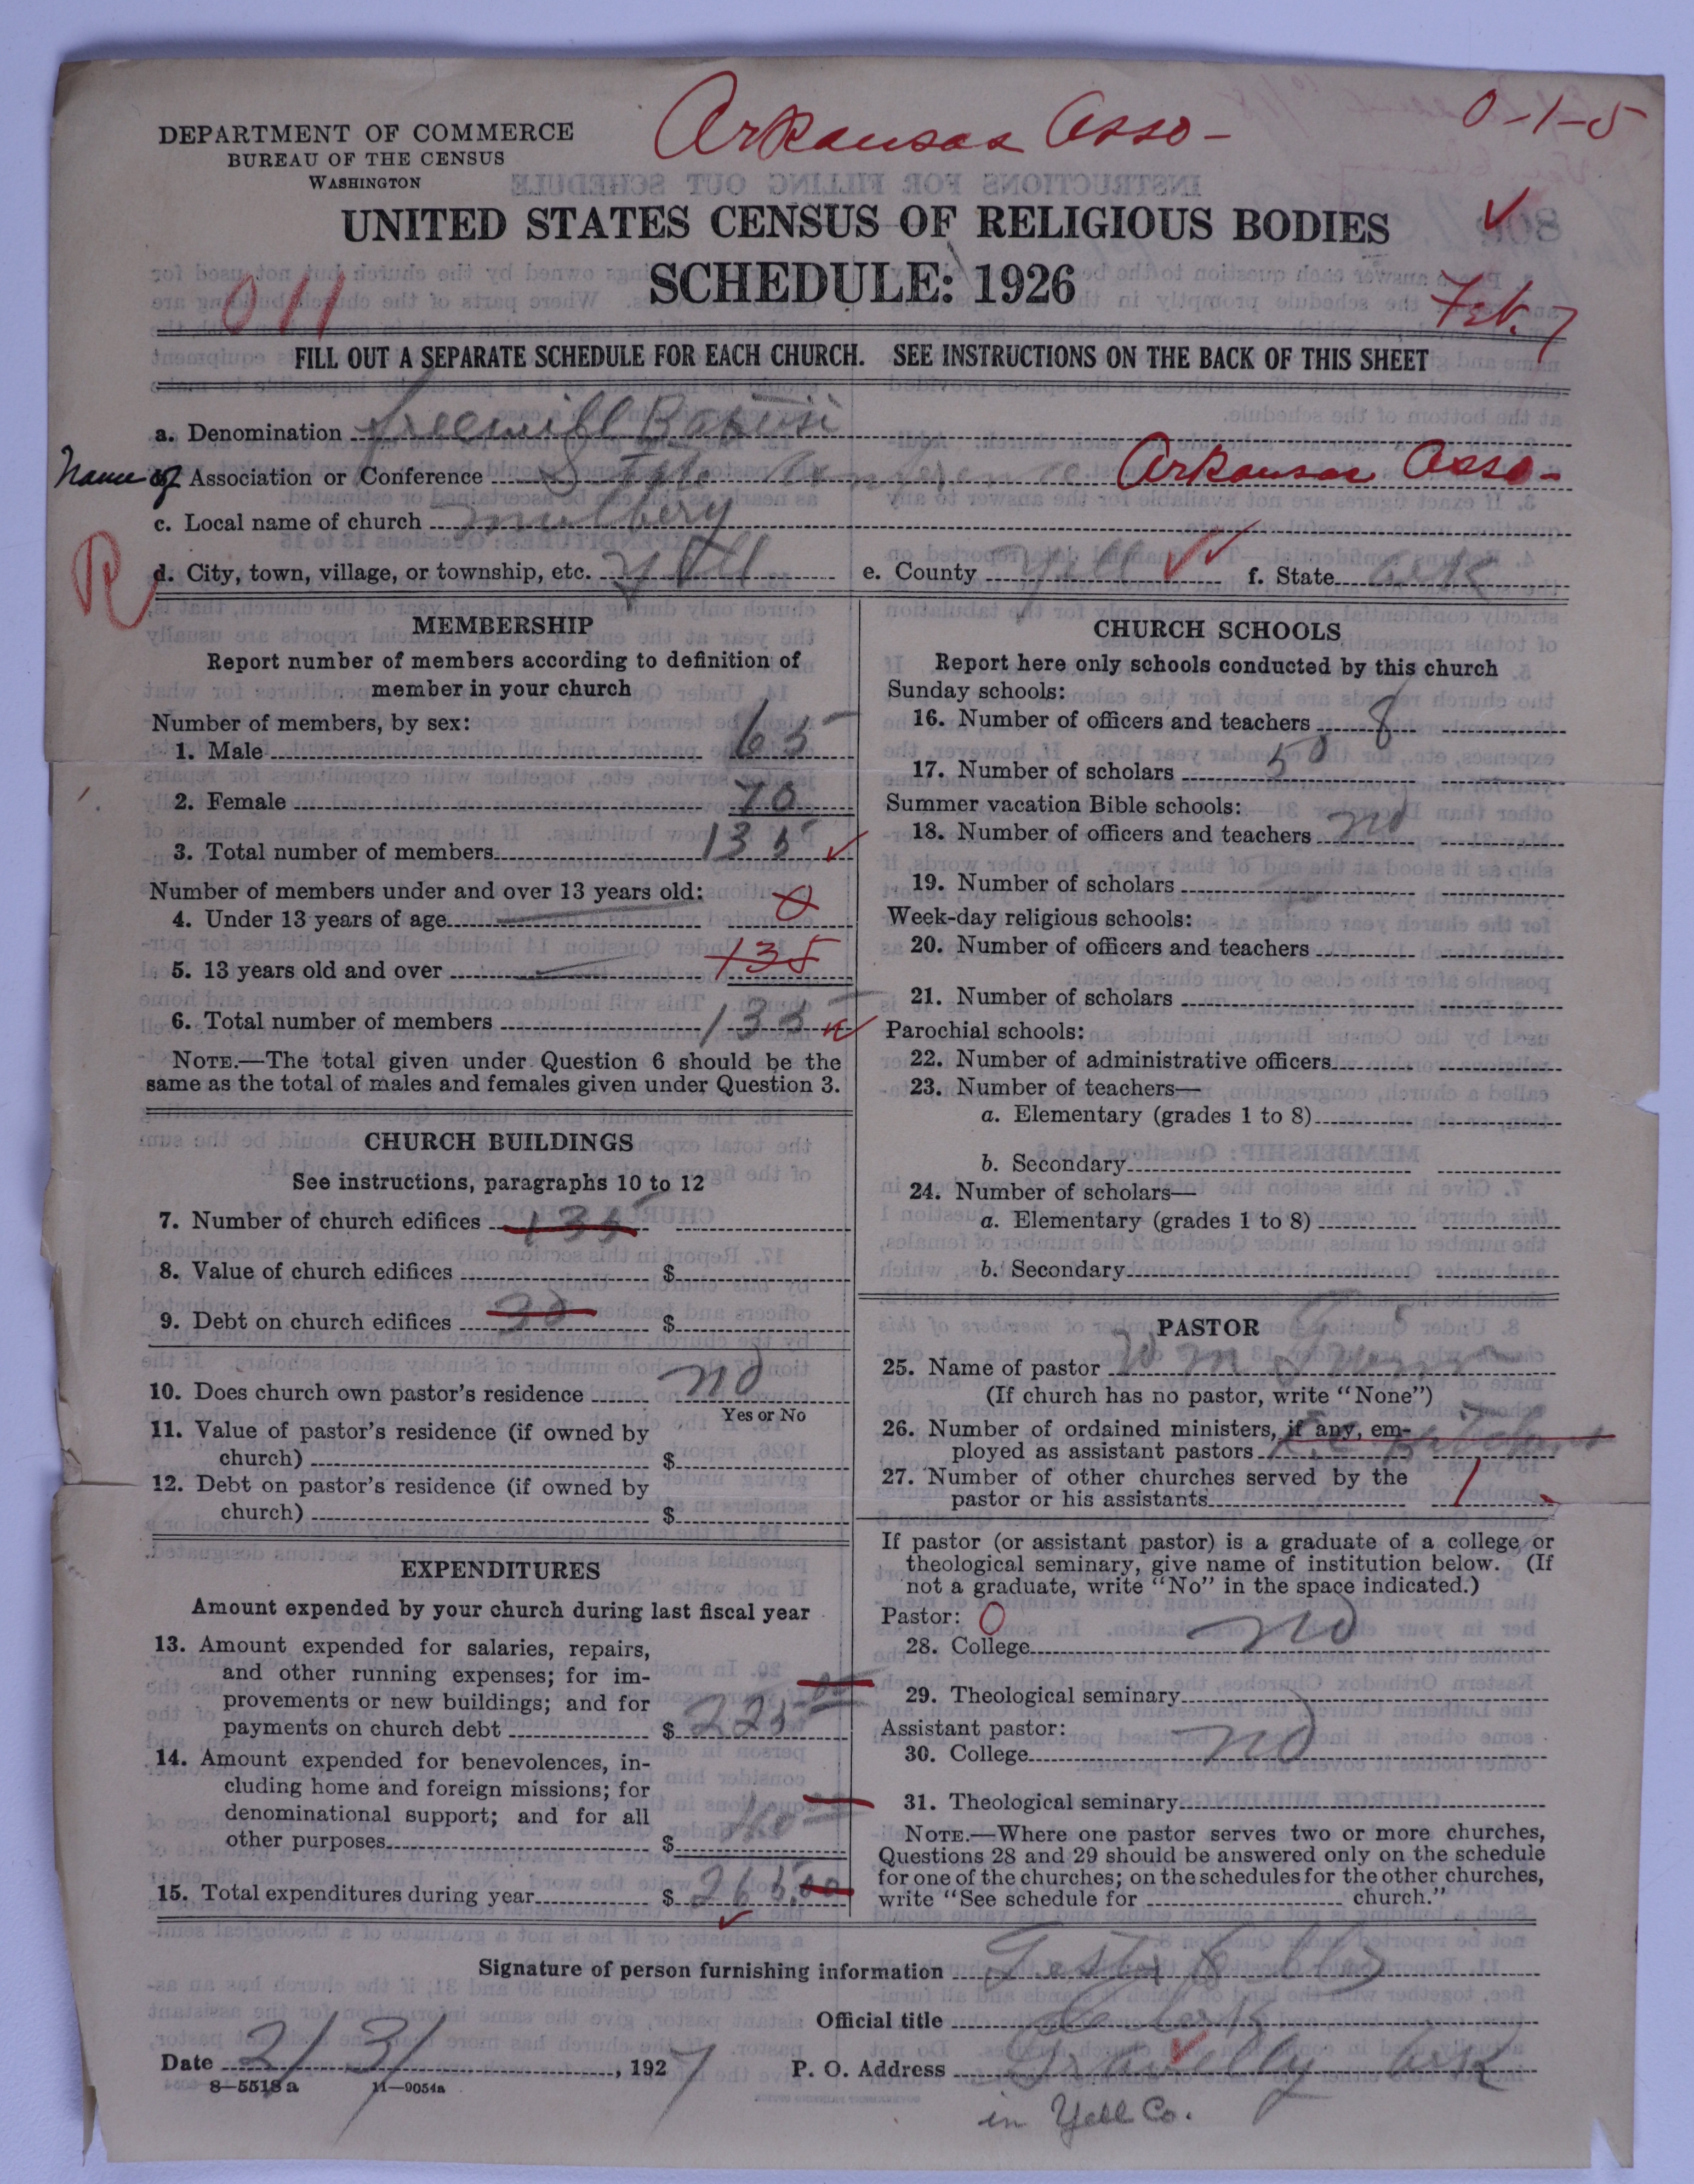 Arkansas Asso-
0-1-5
DEPARTMENT OF COMMERCE
BUREAU OF THE CENSUS
WASHINGTON
UNITED STATES CENSUS OF RELIGIOUS BODIES
SCHEDULE: 1926
011
Feb. 7
FILL OUT A SEPARATE SCHEDULE FOR EACH CHURCH. SEE INSTRUCTIONS ON THE BACK OF THIS SHEET
a. Denomination freewill Baptist
Name of Association or Conference State Conference Arkansas Asso-
c. Local name of church mulbery
R
d. City, town, village, or township, etc. Yell e. County Yell f. State Ark
MEMBERSHIP
Report number of members according to definition of
member in your church
Number of members, by sex:
1. Male 65
2. Female 70
3. Total number of members 135
Number of members under and over 13 years old:
4. Under 13 years of age 0
5. 13 years old and over 135
6. Total number of members 135
NOTE.—The total given under Question 6 should be the
same as the total of males and females given under Question 3.
CHURCH BUILDINGS
See instructions, paragraphs 10 to 12
7. Number of church edifices 135
8. Value of church edifices $
9. Debt on church edifices $
10. Does church own pastor's residence no
Yes or No
11. Value of pastor's residence (if owned by
church) $
12. Debt on pastor's residence (if owned by
church) $
EXPENDITURES
Amount expended by your church during last fiscal year
13. Amount expended for salaries, repairs,
and other running expenses; for im-
provements or new buildings; and for
payments on church debt $ 225 00
14. Amount expended for benevolences, in-
cluding home and foreign missions; for
denominational support; and for all
other purposes $ 40
15. Total expenditures during year $ 265.00
CHURCH SCHOOLS
Report here only schools conducted by this church
Sunday schools:
16. Number of officers and teachers 8
17. Number of scholars 50
Summer vacation Bible schools:
18. Number of officers and teachers no
19. Number of scholars
Week-day religious schools:
20. Number of officers and teachers
21. Number of scholars
Parochial schools:
22. Number of administrative officers
23. Number of teachers—
a. Elementary (grades 1 to 8)
b. Secondary
24. Number of scholars—
a. Elementary (grades 1 to 8)
b. Secondary
PASTOR
25. Name of pastor Wm
(If church has no pastor, write "None")
26. Number of ordained ministers, if any, em-
ployed as assistant pastors
27. Number of other churches served by the
pastor or his assistants 1
If pastor (or assistant pastor) is a graduate of a college or
theological seminary, give name of institution below. (If
not a graduate, write "No" in the space indicated.)
Pastor: 0
28. College no
29. Theological seminary
Assistant pastor:
30. College no
31. Theological seminary
NOTE.—Where one pastor serves two or more churches,
Questions 28 and 29 should be answered only on the schedule
for one of the churches; on the schedules for the other churches,
write "See schedule for church."
Signature of person furnishing information
Official title Clerk
Date 2/3/, 1927 P. O. Address Gravelly Ark
8—5518a 11—9054a
in Yell Co.